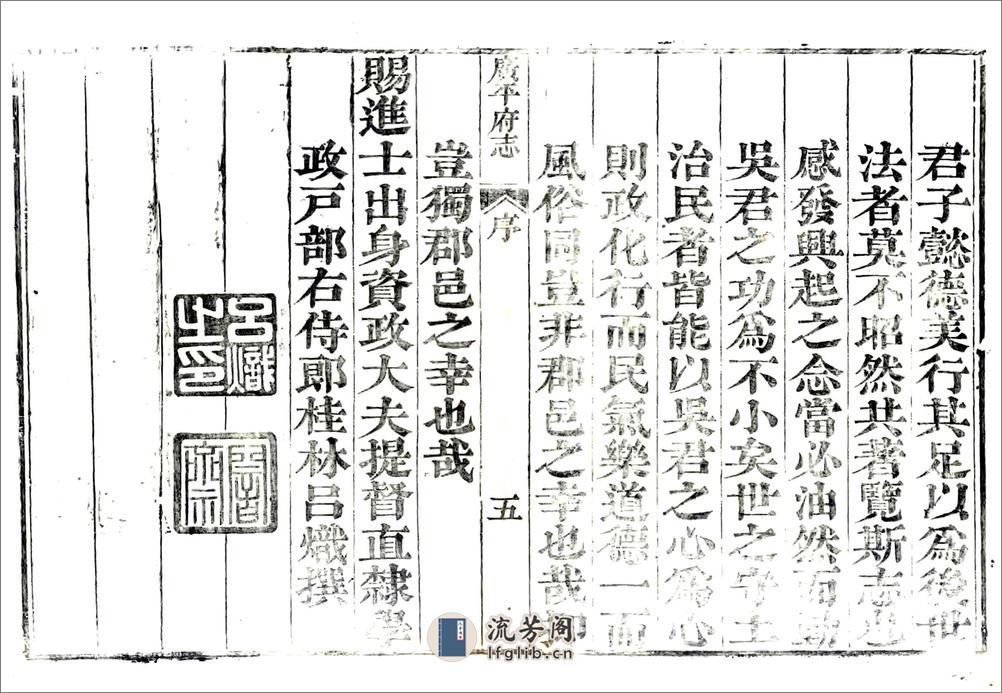 君子懿德美行其足以為後世
法者莫不昭然共著覽斯志也
感發興起之念當必油然而動
吳君之功為不小矣世之守土
治民者皆能以吳君之心為心
則政化行而民氣樂道德一而
風俗同豈非郡邑之幸也哉
廣平府志
序
五
豈獨郡邑之幸也哉
賜進士出身資政大夫提督直隸學
政戸部右侍郎桂林呂熾撰
呂熾之印
流芳阁
lfglib.cn